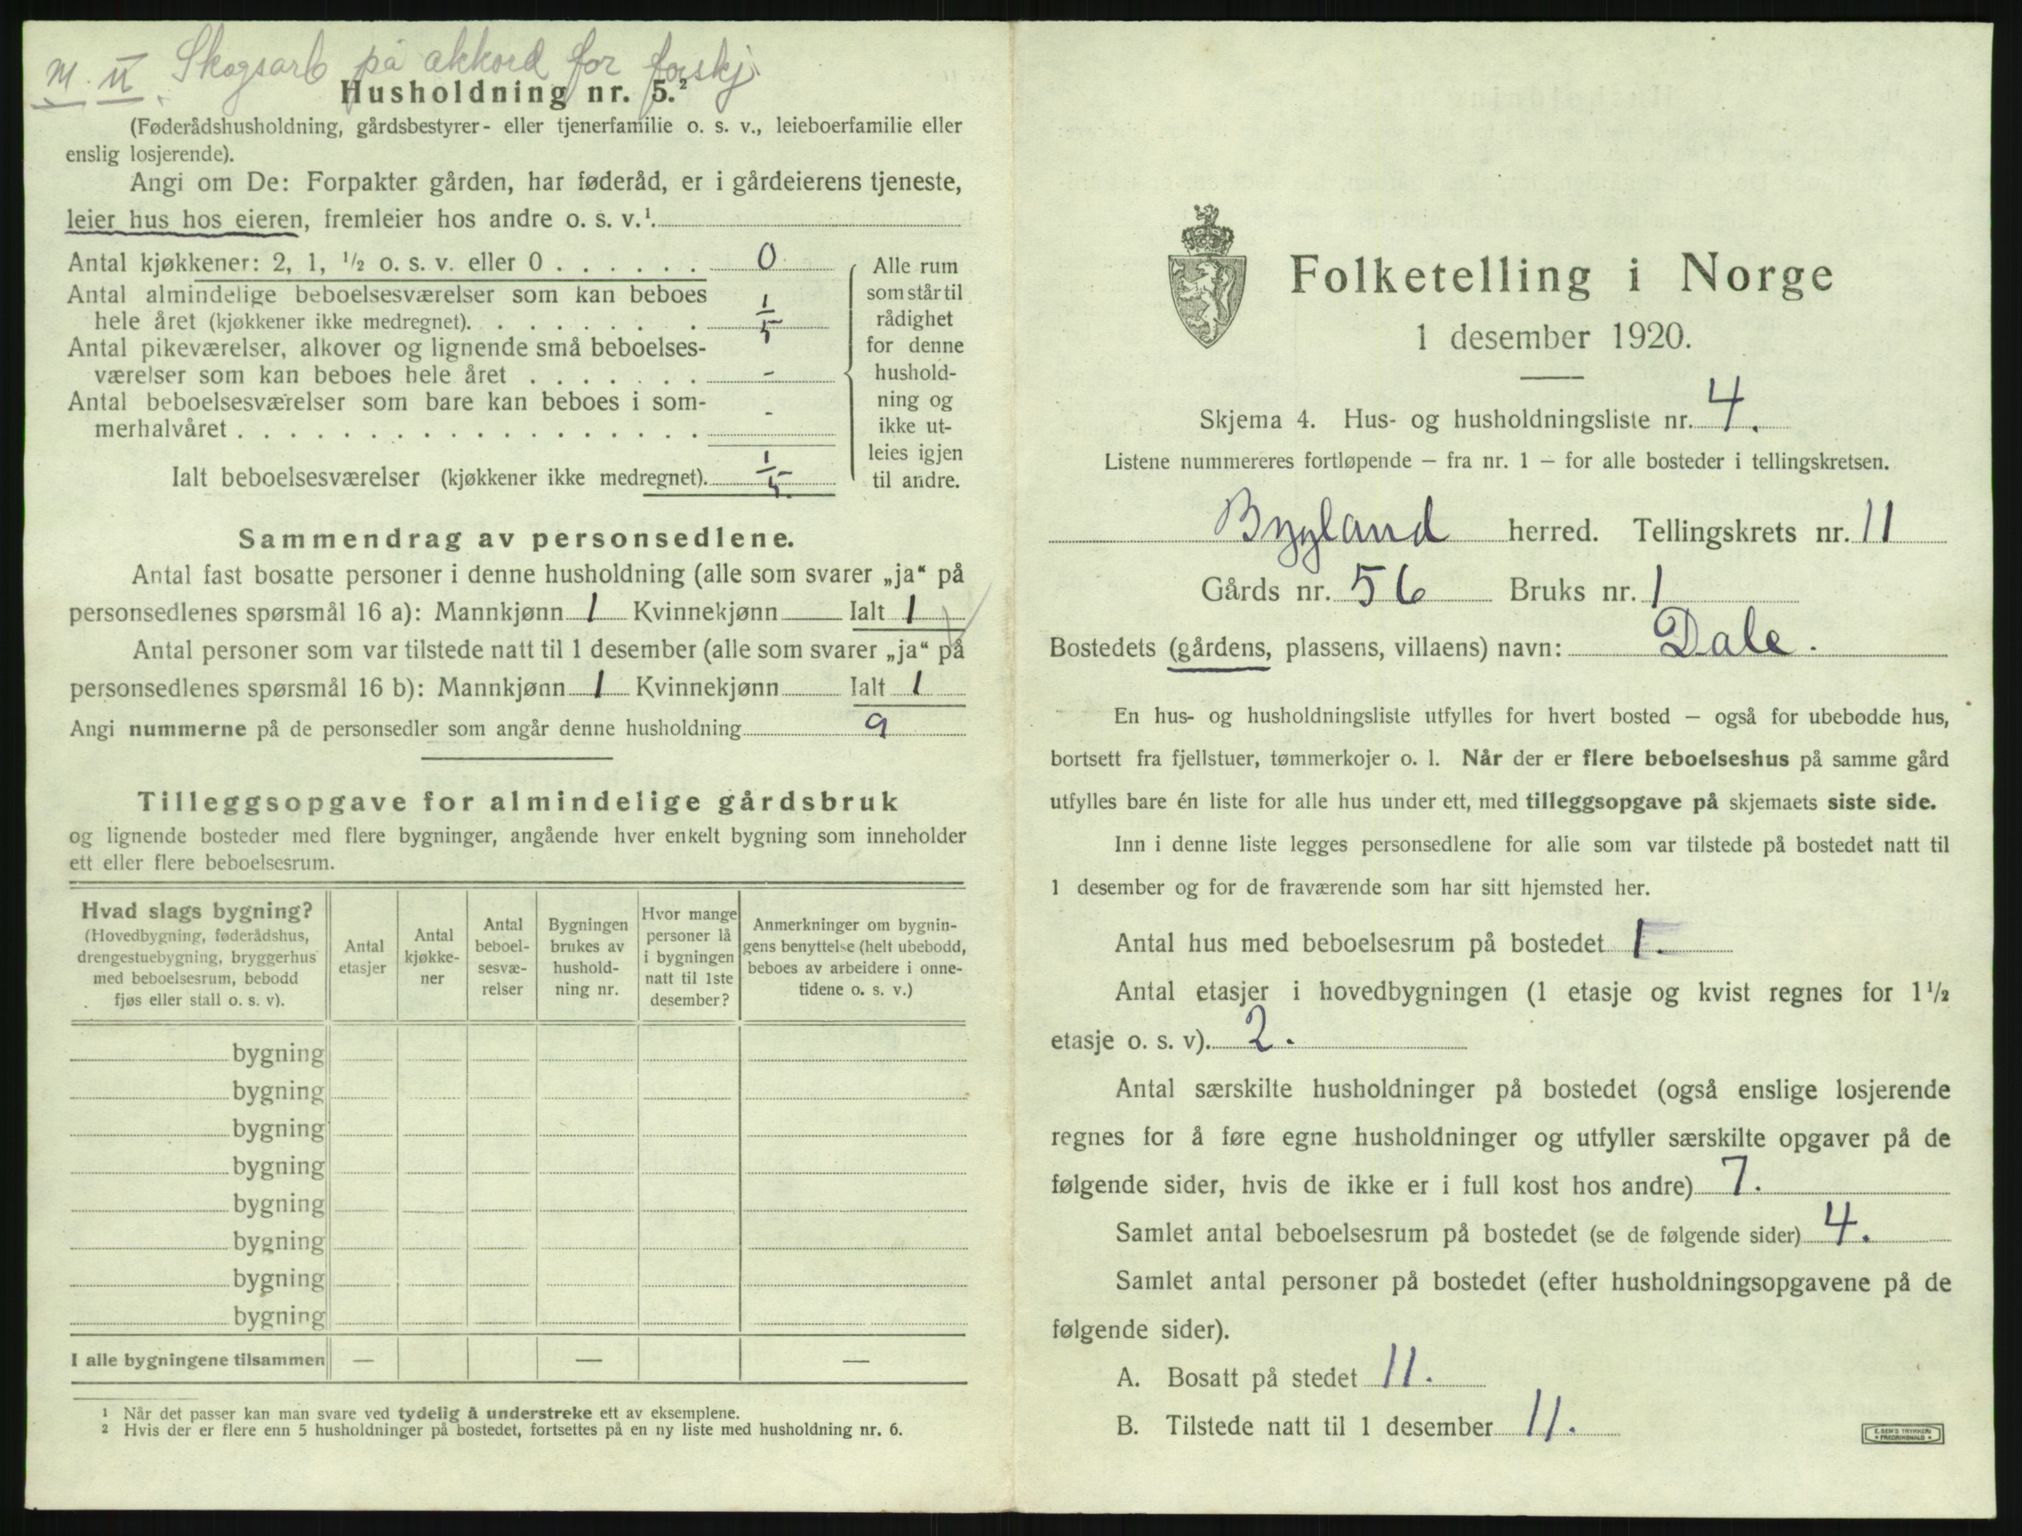 M. U. Skogsarb på akkord for forskj.
Husholdning nr. 5.²
(Føderådshusholdning, gårdsbestyrer- eller tjenerfamilie o. s. v., leieboerfamilie eller
enslig losjerende).
Angi om De: Forpakter gården, har føderåd, er i gårdeierens tjeneste,
leier hus hos eieren, fremleier hos andre o. s. v.¹
Antal kjøkkener: 2, 1, ½ o. s. v. eller 0 . . . . . . 0
Antal almindelige beboelsesværelser som kan beboes
hele året (kjøkkener ikke medregnet). . . . . . . . 1/5
Antal pikeværelser, alkover og lignende små beboelses-
værelser som kan beboes hele året . . . . . . . -
Antal beboelsesværelser som bare kan beboes i som-
merhalvåret . . . . . . . . . . . . . . . . . . -
Ialt beboelsesværelser (kjøkkener ikke medregnet). 1/5
Alle rum
som står til
rådighet
for denne
hushold-
ning og
ikke ut-
leies igjen
til andre.
Sammendrag av personsedlene.
Antal fast bosatte personer i denne husholdning (alle som svarer „ja“ på
personsedlenes spørsmål 16 a): Mannkjønn 1 Kvinnekjønn Ialt 1
Antal personer som var tilstede natt til 1 desember (alle som svarer „ja“ på
personsedlenes spørsmål 16 b): Mannkjønn 1 Kvinnekjønn Ialt 1
Angi nummerne på de personsedler som angår denne husholdning 9
Tilleggsopgave for almindelige gårdsbruk
og lignende bosteder med flere bygninger, angående hver enkelt bygning som inneholder
ett eller flere beboelsesrum.
Hvad slags bygning?
(Hovedbygning, føderådshus,
drengestuebygning, bryggerhus
med beboelsesrum, bebodd
fjøs eller stall o. s. v).
Antal
etasjer
Antal
kjøkke-
ner
Antal
beboel-
sesvæ-
relser
Bygningen
brukes av
hushold-
ning nr.
Hvor mange
personer lå
i bygningen
natt til 1ste
desember?
Anmerkninger om bygnin-
gens benyttelse (helt ubebodd,
beboes av arbeidere i onne-
tidene o. s. v.)
bygning
bygning
bygning
bygning
bygning
bygning
bygning
bygning
I alle bygningene tilsammen — — —
¹ Når det passer kan man svare ved tydelig å understreke ett av eksemplene.
² Hvis der er flere enn 5 husholdninger på bostedet, fortsettes på en ny liste med husholdning nr. 6.
Folketelling i Norge
1 desember 1920.
Skjema 4. Hus- og husholdningsliste nr. 4.
Listene nummereres fortløpende – fra nr. 1 – for alle bosteder i tellingskretsen.
Bygland herred. Tellingskrets nr. 11
Gårds nr. 56 Bruks nr. 1
Bostedets (gårdens, plassens, villaens) navn: Dale.
En hus- og husholdningsliste utfylles for hvert bosted – også for ubebodde hus,
bortsett fra fjellstuer, tømmerkojer o. l. Når der er flere beboelseshus på samme gård
utfylles bare én liste for alle hus under ett, med tilleggsopgave på skjemaets siste side.
Inn i denne liste legges personsedlene for alle som var tilstede på bostedet natt til
1 desember og for de fraværende som har sitt hjemsted her.
Antal hus med beboelsesrum på bostedet 1.
Antal etasjer i hovedbygningen (1 etasje og kvist regnes for 1½
etasje o. s. v). 2.
Antal særskilte husholdninger på bostedet (også enslige losjerende
regnes for å føre egne husholdninger og utfyller særskilte opgaver på de
følgende sider, hvis de ikke er i full kost hos andre) 7.
Samlet antal beboelsesrum på bostedet (se de følgende sider) 4.
Samlet antal personer på bostedet (efter husholdningsopgavene på de
følgende sider).
A. Bosatt på stedet 11.
B. Tilstede natt til 1 desember 11.
E. SEM'S TRYKKERI
• FREDRIKSHALD •